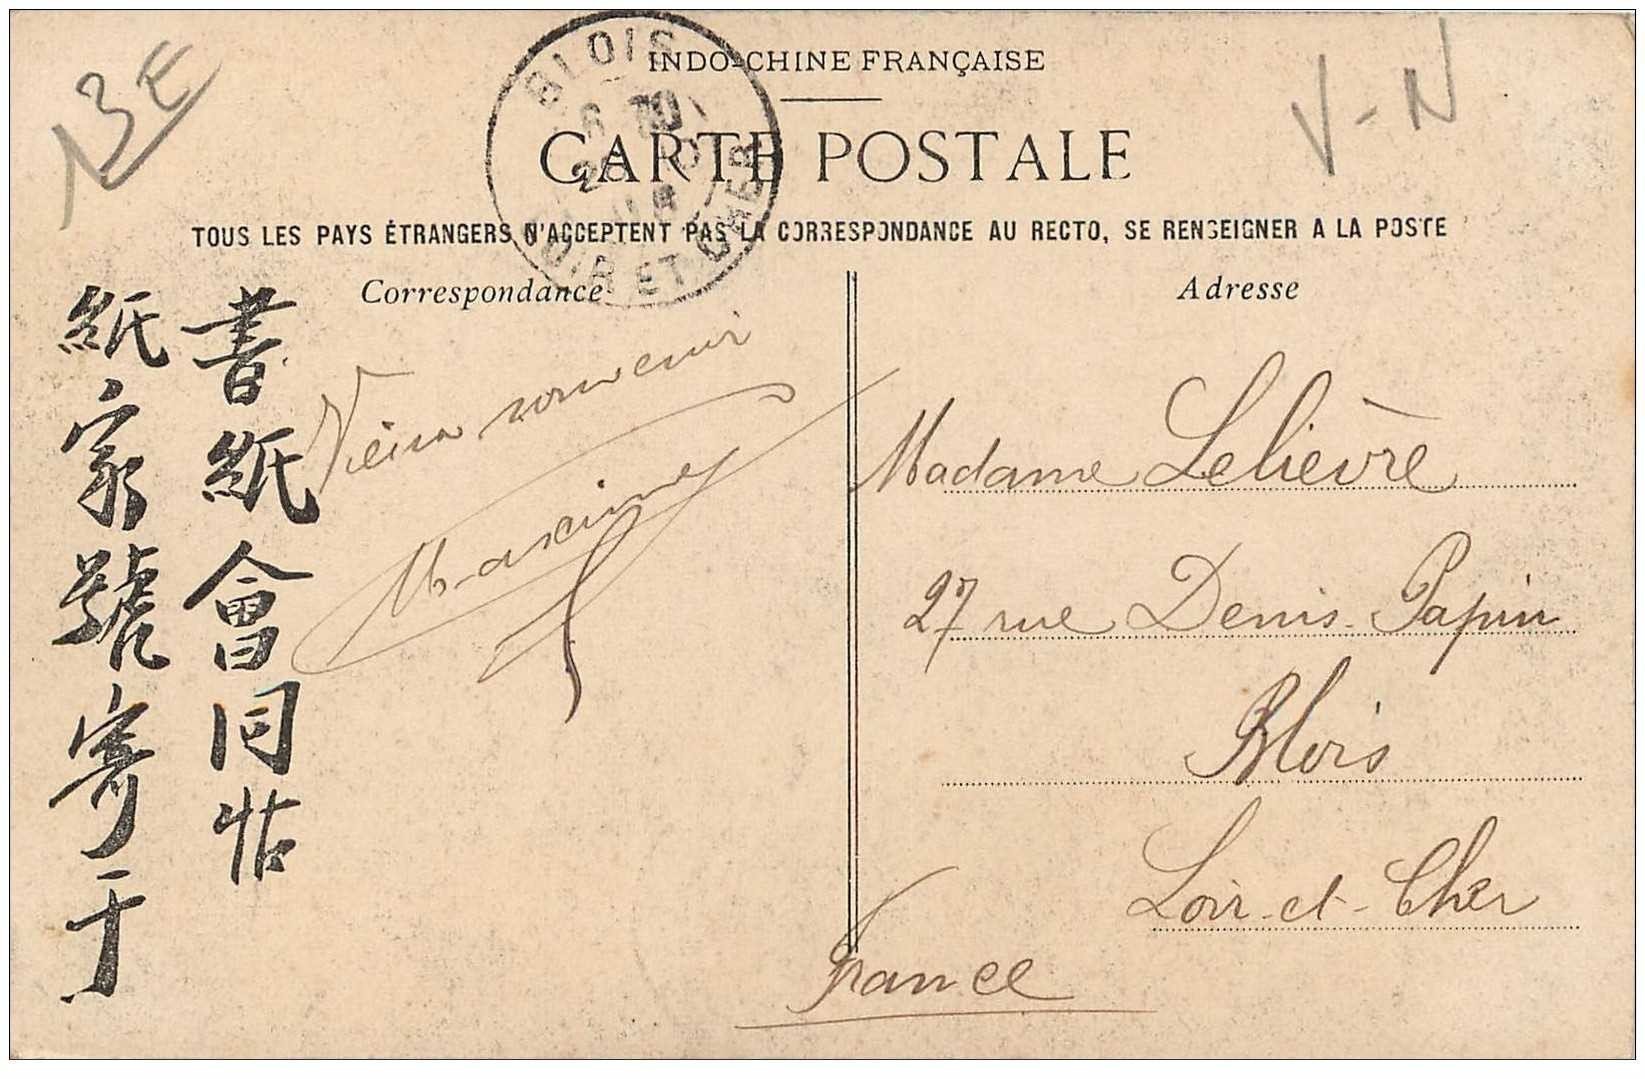 13E
V-N
INDO-CHINE FRANÇAISE
CARTE POSTALE
TOUS LES PAYS ÉTRANGERS N'ACCEPTENT PAS LA CORRESPONDANCE AU RECTO, SE RENSEIGNER A LA POSTE
BLOIS
LOIR ET CHER
Correspondance
書紙會同帖
紙家號寄于
souvenir
Maxime
Adresse
Madame Lelièvre
27 rue Denis-Papin
Blois
Loir-et-Cher
France